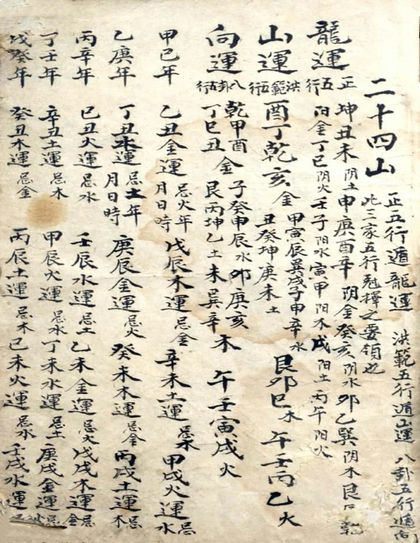 二十四山
正五行遁龍運 洪範五行遁山運 八卦五行遁向
此三家五行剋擇之要領也
龍運 正五行 坤丑未 陰土 申庚酉辛 陰金 癸亥 陰水 卯乙巽 陰木 艮 乾
陽金 丁巳 陰火 壬子 陽水 寅甲 陽木 戌 陽土 丙午 陽火
山運 洪範五行 酉丁乾亥 金 甲寅辰巽戌子申辛 水 艮卯巳 木 午壬丙乙 火
丑癸坤庚未 土
向運 八卦五行 乾甲酉 金 子癸申辰 水 卯庚亥
丁巳丑 金 艮丙坤乙 土 未巽辛 木 午壬寅戌 火
甲巳年 乙丑金運 忌火年月日時 戊辰木運 忌金 辛未土運 忌木 甲戌火運 忌水
乙庚年 丁丑水運 忌土年月日時 庚辰金運 忌火 癸未木運 忌金 丙戌土運 忌木
丙辛年 巳丑火運 忌水 壬辰水運 忌土 乙未金運 忌火 戊戌木運 忌金
丁壬年 辛丑土運 忌木 甲辰火運 忌水 丁未水運 忌土 庚戌金運 忌
戊癸年 癸丑木運 忌金 丙辰土運 忌木 巳未火運 忌水 壬戌水運